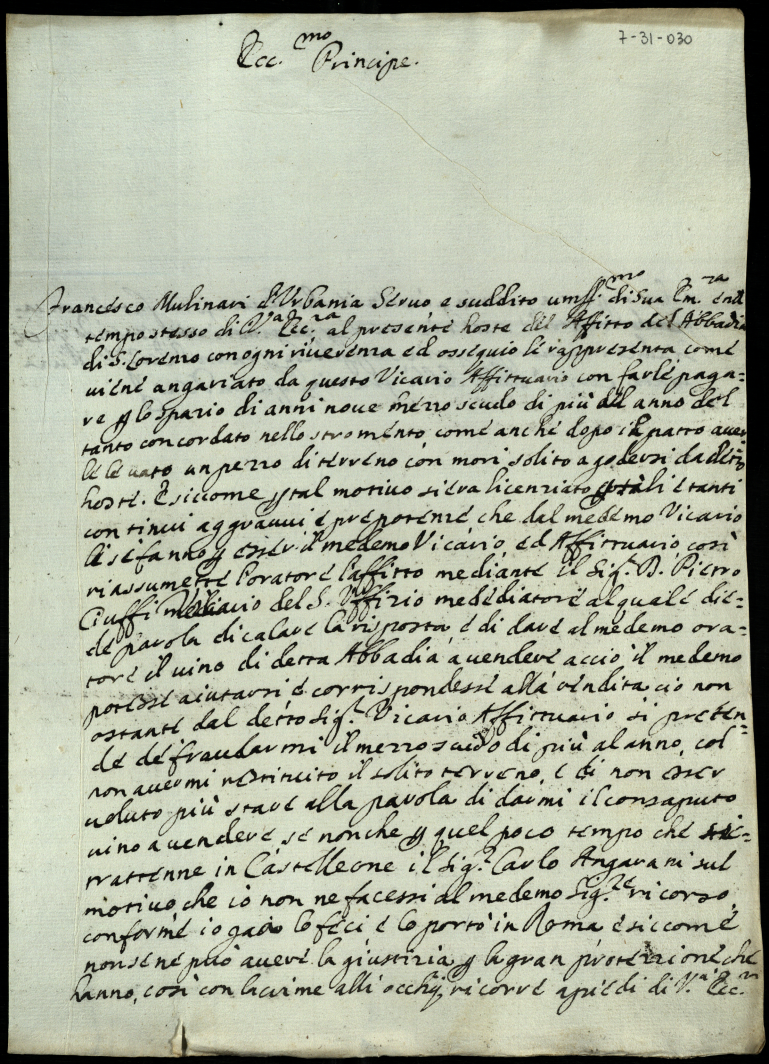 7-31-030
Ecc.mo Principe.
Francesco Mulinari d'Urbania Servo e suddito umiss.mo di Sua Em.za e nel
tempo stesso di V.a Ecc.za al presente hoste del Affitto del Abbadia
di S. Lorenzo con ogni riverenza ed ossequio le rappresenta come
viene angariato da questo Vicario Affittuario con farle paga=
re p lo spazio di anni nove mezzo scudo di più del anno del
tanto concordato nello stromento come anche dopo il patto aver
le levato un pezzo di terreno con mori solito a godersi da detto
hoste. E siccome p tal motivo si era licenziato e tanti
continui aggravvii e prepotenze che dal medemo Vicario
le se fanno p esser il medemo Vicario, ed Affittuario, così
riassumette l'oratore l'affitto mediante il Sig.r D. Pietro
Ciuffi Vicario del S. Uffizio mededediatore al quale die=
de parola di calare la risposta, e di dare al medemo ora=
tore il vino di detta Abbadia a vendere acciò il medemo
potesse aiutarsi e corrispondesse alla vendita ciò non
ostante dal detto Sig.r Vicario Affittuario si preten=
de defraudarmi il mezzo scudo di più al anno, col
non avermi restituito il solito terreno, e di non esser
voluto più stare alla parola di darmi il consaputo
vino a vendere se non che p quel poco tempo che
trattenne in Castelleone il Sig.r Carlo Angarani sul
motivo che io non ne facessi al medemo Sig.re ricorso,
conforme io gado lo feci e lo portò in Roma e siccome
non se ne può avere la giustizia p la gran protezzione che
hanno, così con lacrime alli occhij ricorre a piedi di V.a Ecc.za